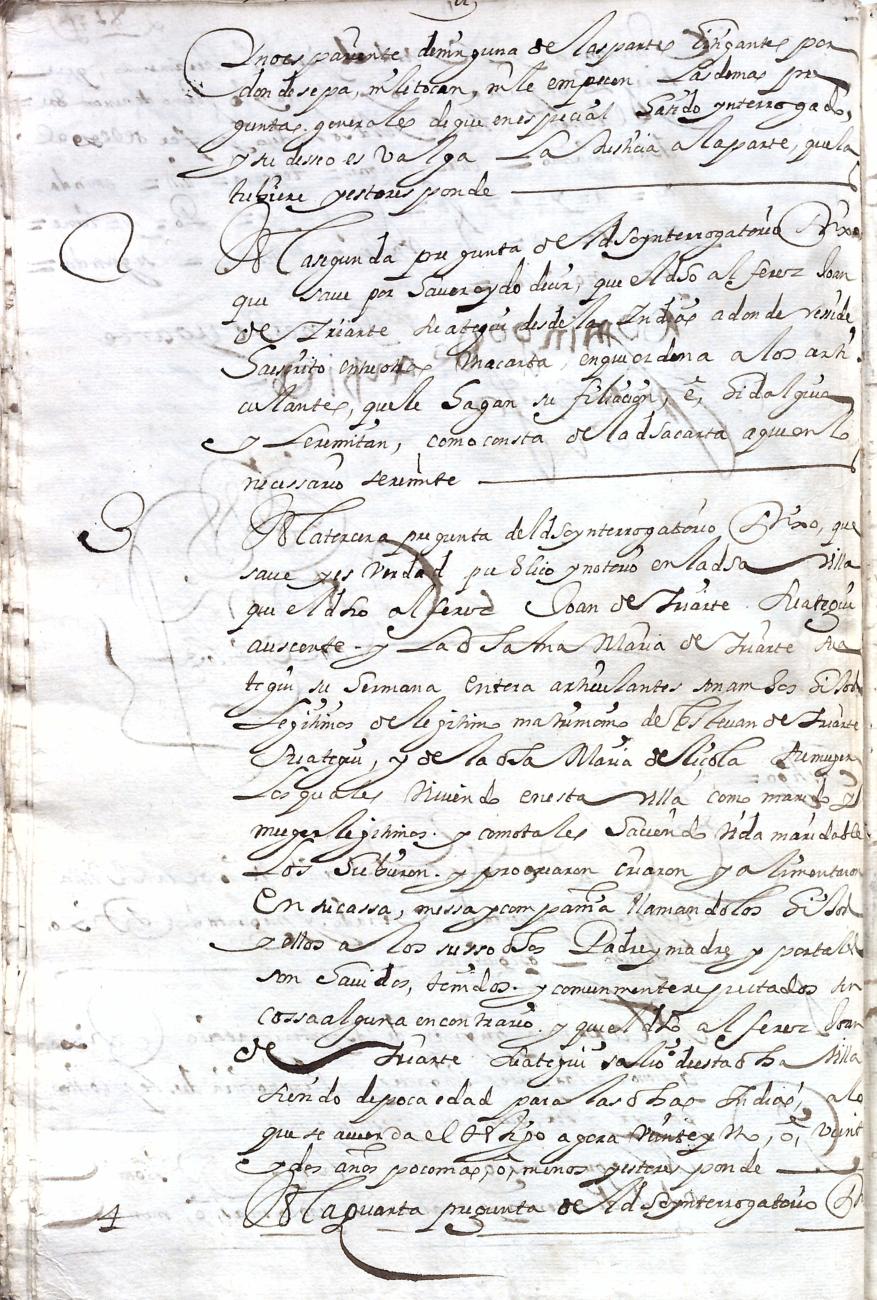 no es pariente de ninguna de las partes litigantes por
donde sepa, ni le tocan, ni le empecen las demas pre
guntas generales de que en especial ha sido ynterrogado,
y su desseo es valga la Justicia a la parte, que la
tubiere y esto responde
2 A la segunda pregunta del dho ynterrogatorio Dixo
que save por haver oydo decir, que el dho alferez Joan
de Yriarte Reategui desde las Indias adonde reside
ha escrito entre otras una carta, en que ordena a los arti
culantes, que le hagan su filiacion, é, hidalguia
y le remitan, como consta de la dha carta a que en lo
necessario se remite
3 A la tercera pregunta del dho ynterrogatorio Dixo, que
save y es verdad publico y notorio en la dha Villa
que el dho alferez Joan de Yriarte Reategui
auscente y la dha Ana Maria de Yriarte Rea
tegui su hermana entera articulantes son ambos hijos
Legitimos de legitimo matrimonio de Estevan de Yriarte
Reategui, y de la dha Maria de su muger
Los quales viviendo en esta villa como marido y
muger legitimos y como tales haciendo vida maridable
Los hubieron y procrearon criaron y alimentaron
En su cassa, messa y compañia llamandolos hijos
y ellos a los susso dhos Padre y madre y por tales
son havidos, tenidos y comunmente reputados sin
cossa alguna en contrario y que el dho alferez Joan
de Yriarte Reategui salio de esta dha Villa
siendo de poca edad para las dhas Indias, a lo
que se acuerda el tpo agora veinte y un, ó, veint
y dos años poco mas, o, menos y esto responde
4 A la quarta pregunta del dho ynterrogatorio Di